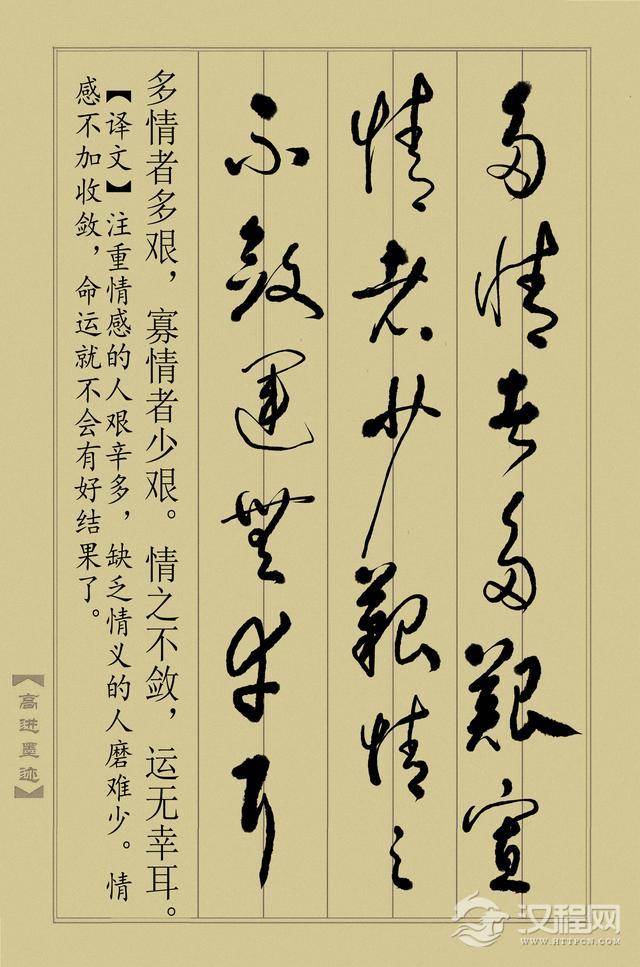 多情者多艱寡
情者少艱情之
不斂運無幸耳
多情者多艰，寡情者少艰。情之不敛，运无幸耳。
【译文】注重情感的人艰辛多，缺乏情义的人磨难少。情
感不加收敛，命运就不会有好结果了。
【高进墨迹】
汉程网
WWW.HTTPCN.COM